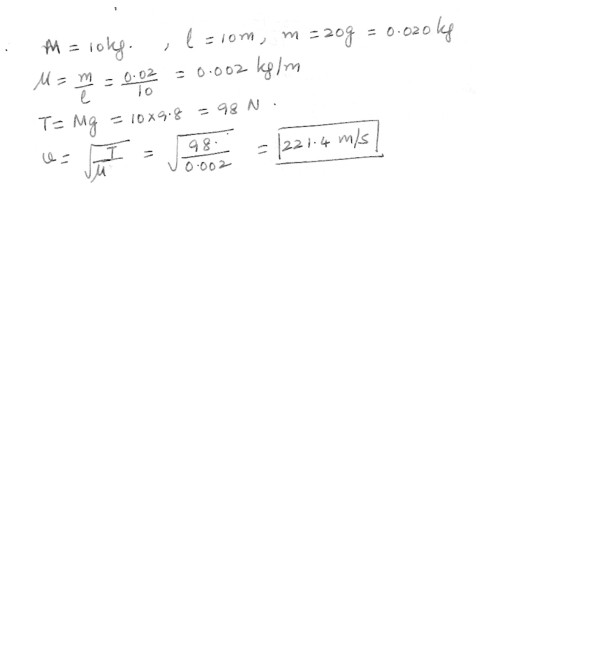 M = 10kg. , l = 10m, m = 20g = 0.020 kg
μ = m/l = 0.02/10 = 0.002 kg/m
T = Mg = 10×9.8 = 98 N.
v = √(T/μ) = √(98./0.002) = 221.4 m/s